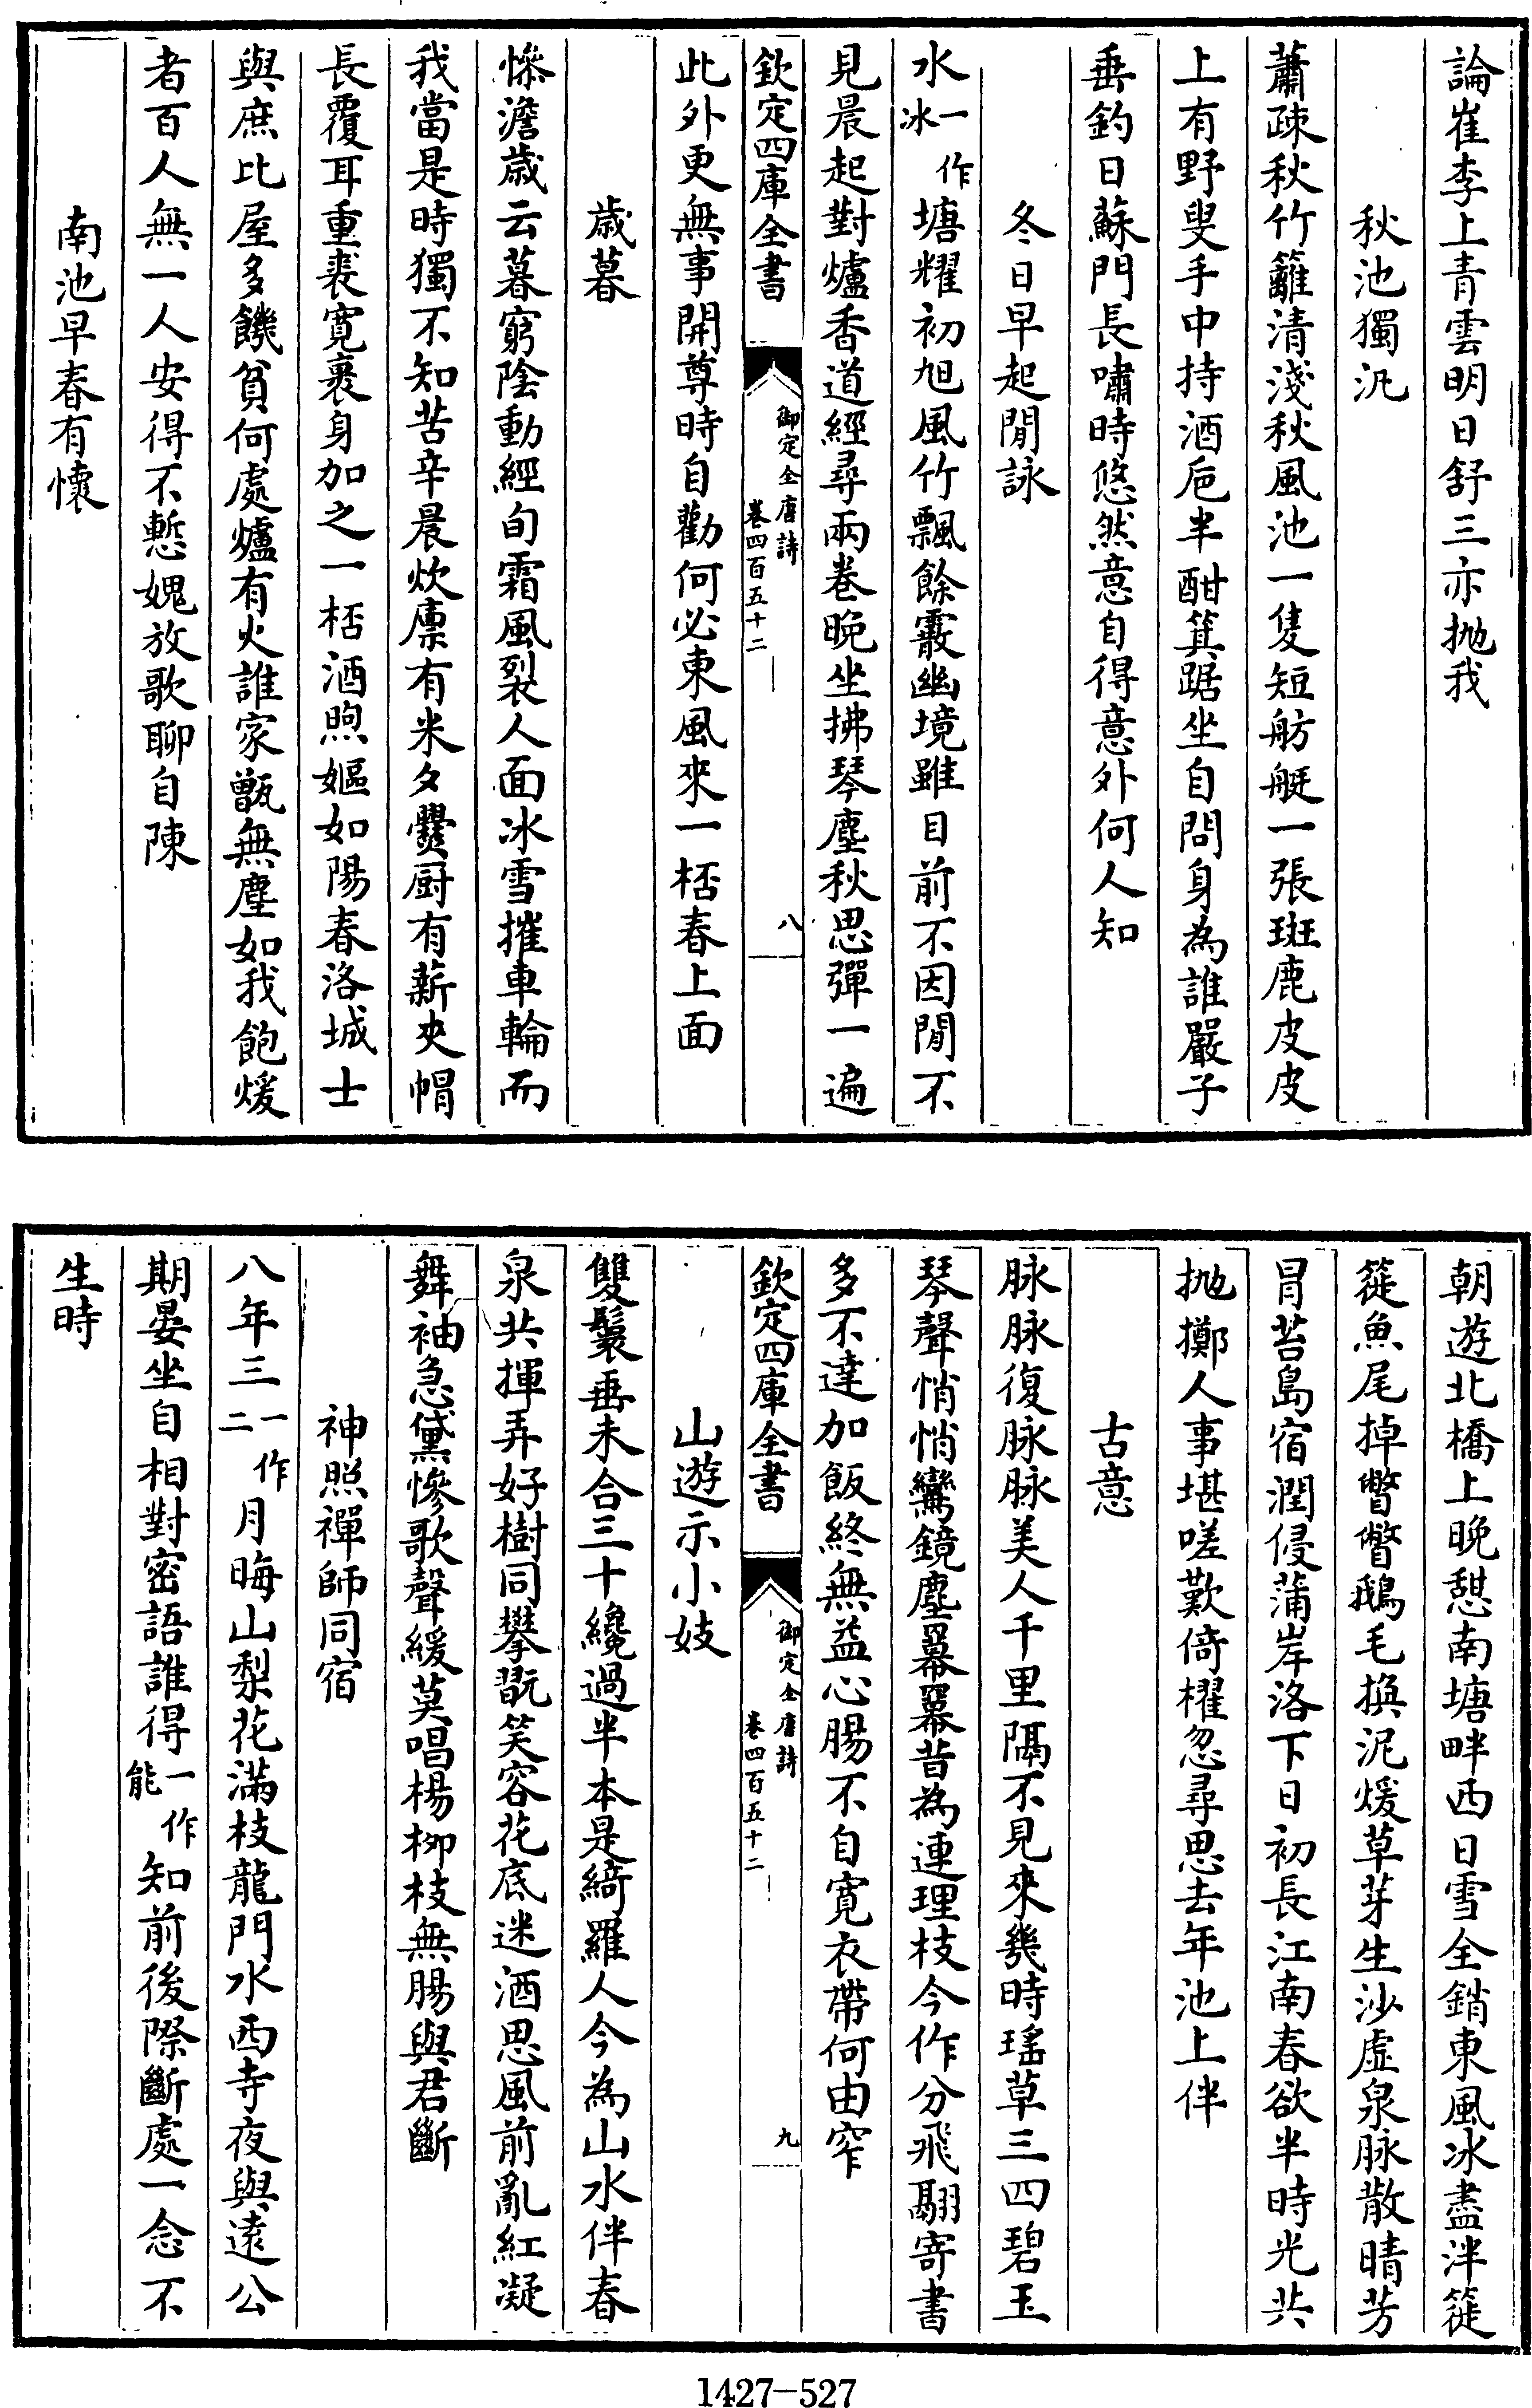 論崔李上青雲明日舒三亦抛我
秋池獨汎
蕭疎秋竹籬清淺秋風池一隻短舫艇一張斑鹿皮皮
上有野叟手中持酒巵半酣箕踞坐自問身為誰嚴子
垂釣日蘇門長嘯時悠然意自得意外何人知
冬日早起閒詠
水一作冰塘耀初旭風竹飄餘霰幽境雖目前不因閒不
見晨起對爐香道經尋兩卷晚坐拂琴塵秋思彈一遍
欽定四庫全書 御定全唐詩 卷四百五十二 八
此外更無事開尊時自勸何必東風來一桮春上面
歲暮
慘澹歲云暮窮陰動經旬霜風裂人面冰雪摧車輪而
我當是時獨不知苦辛晨炊廪有米夕爨厨有薪夾帽
長覆耳重裘寛裹身加之一桮酒煦嫗如陽春洛城士
與庶比屋多饑貧何處爐有火誰家甑無塵如我飽煖
者百人無一人安得不慙媿放歌聊自陳
南池早春有懷
朝遊北橋上晚憩南塘畔西日雪全銷東風冰盡泮簁
簁魚尾掉瞥瞥鵝毛換泥煖草芽生沙虛泉脉散晴芳
冒苔島宿潤侵蒲岸洛下日初長江南春欲半時光共
抛擲人事堪嗟歎倚櫂忽尋思去年池上伴
古意
脉脉復脉脉美人千里隔不見來幾時瑤草三四碧玉
琴聲悄悄鸞鏡塵羃羃昔為連理枝今作分飛翮寄書
多不達加飯終無益心腸不自寛衣帶何由窄
欽定四庫全書 御定全唐詩 卷四百五十二 九
山遊示小妓
雙鬟垂未合三十纔過半本是綺羅人今為山水伴春
泉共揮弄好樹同攀翫笑容花底迷酒思風前亂紅凝
舞袖急黛慘歌聲緩莫唱楊柳枝無腸與君斷
神照禪師同宿
八年三一作二月晦山梨花滿枝龍門水西寺夜與遠公
期晏坐自相對密語誰得一作能知前後際斷處一念不
生時
1427-527